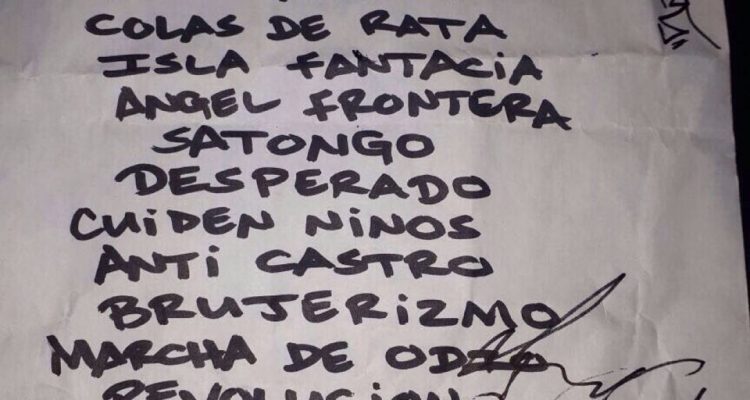 COLAS DE RATA
ISLA FANTACIA
ANGEL FRONTERA
SATONGO
DESPERADO
CUIDEN NINOS
ANTI CASTRO
BRUJERIZMO
MARCHA DE ODIO
REVOLUCION